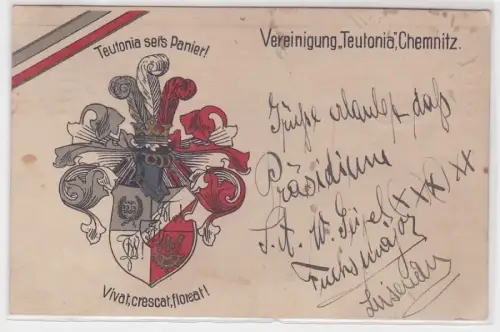 Teutonia sei's Panier!
Vereinigung „Teutonia“, Chemnitz.
Grüße erlaubt daß
Präsidium
(XXX) XX
Fuchsmajor
Vivat, crescat, floreat!